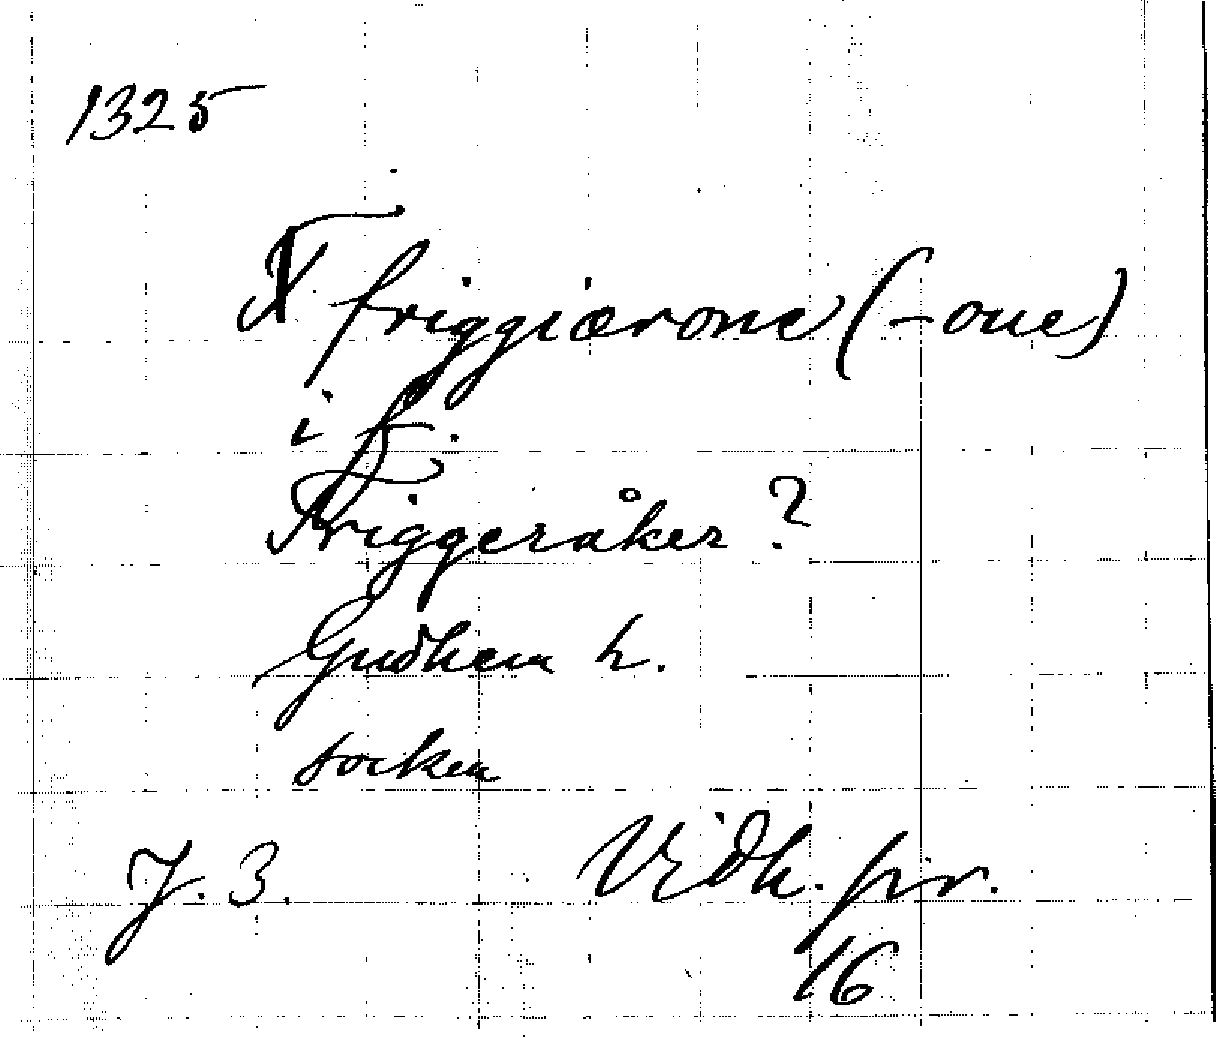 1325
X friggiærone (-oue)
i f.
Friggeråker ?
Gudhem h.
socken
J. 3. Vidh. pr.
16